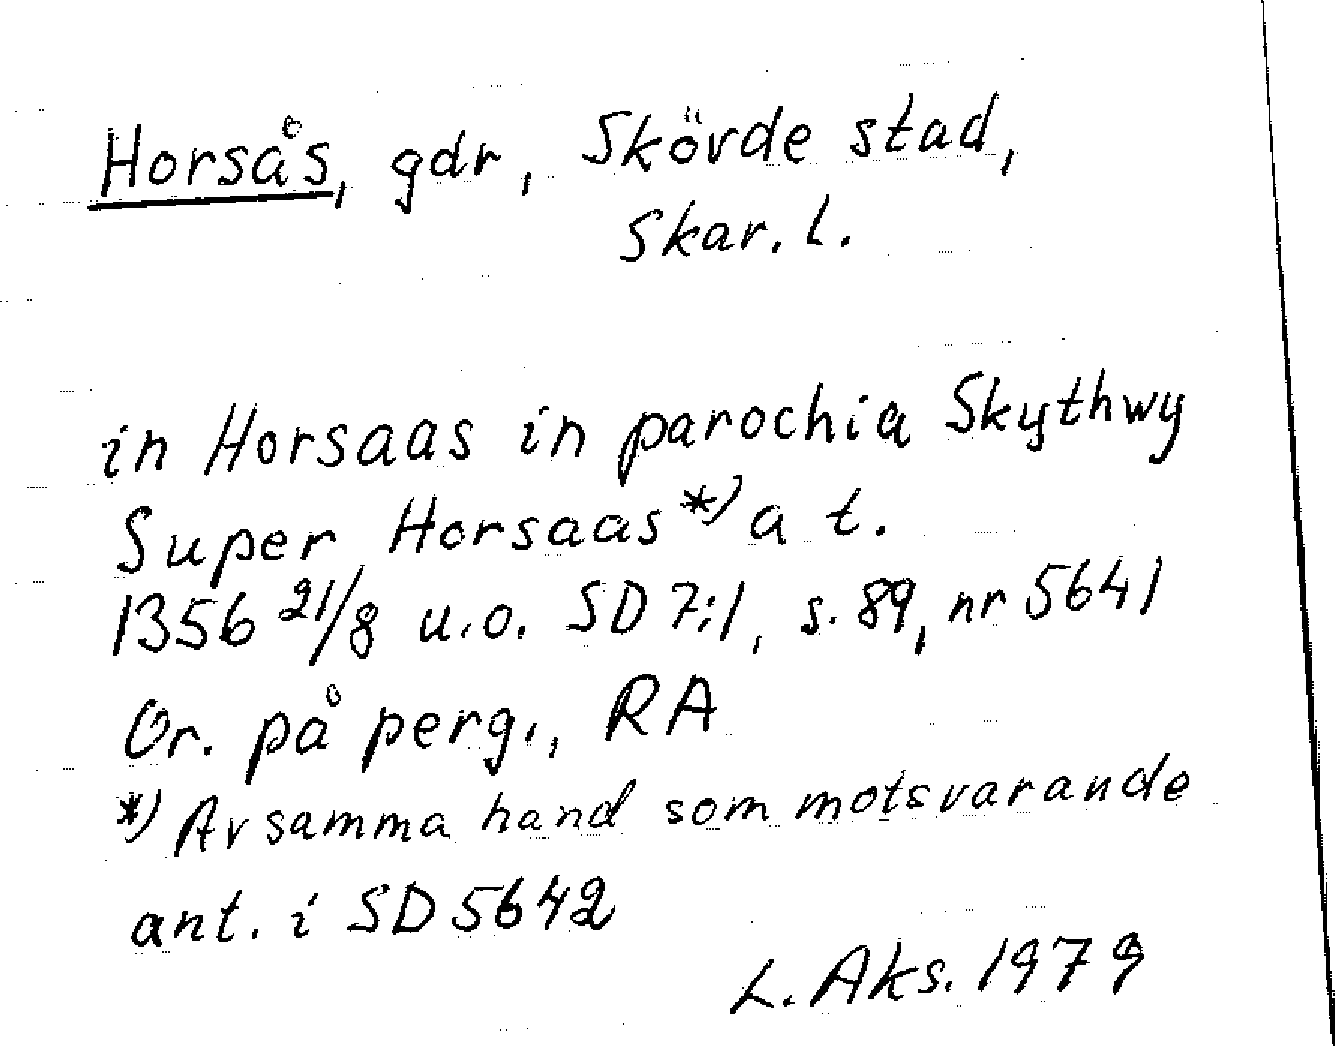 Horsås, gdr, Skövde stad,
Skar. L.
in Horsaas in parochia Skythwy
Super Horsaas *) a t.
1356 21/8 u.o. SD 7:1, s. 89, nr 5641
Or. på perg., RA
*) Av samma hand som motsvarande
ant. i SD 5642
L. Aks. 1979